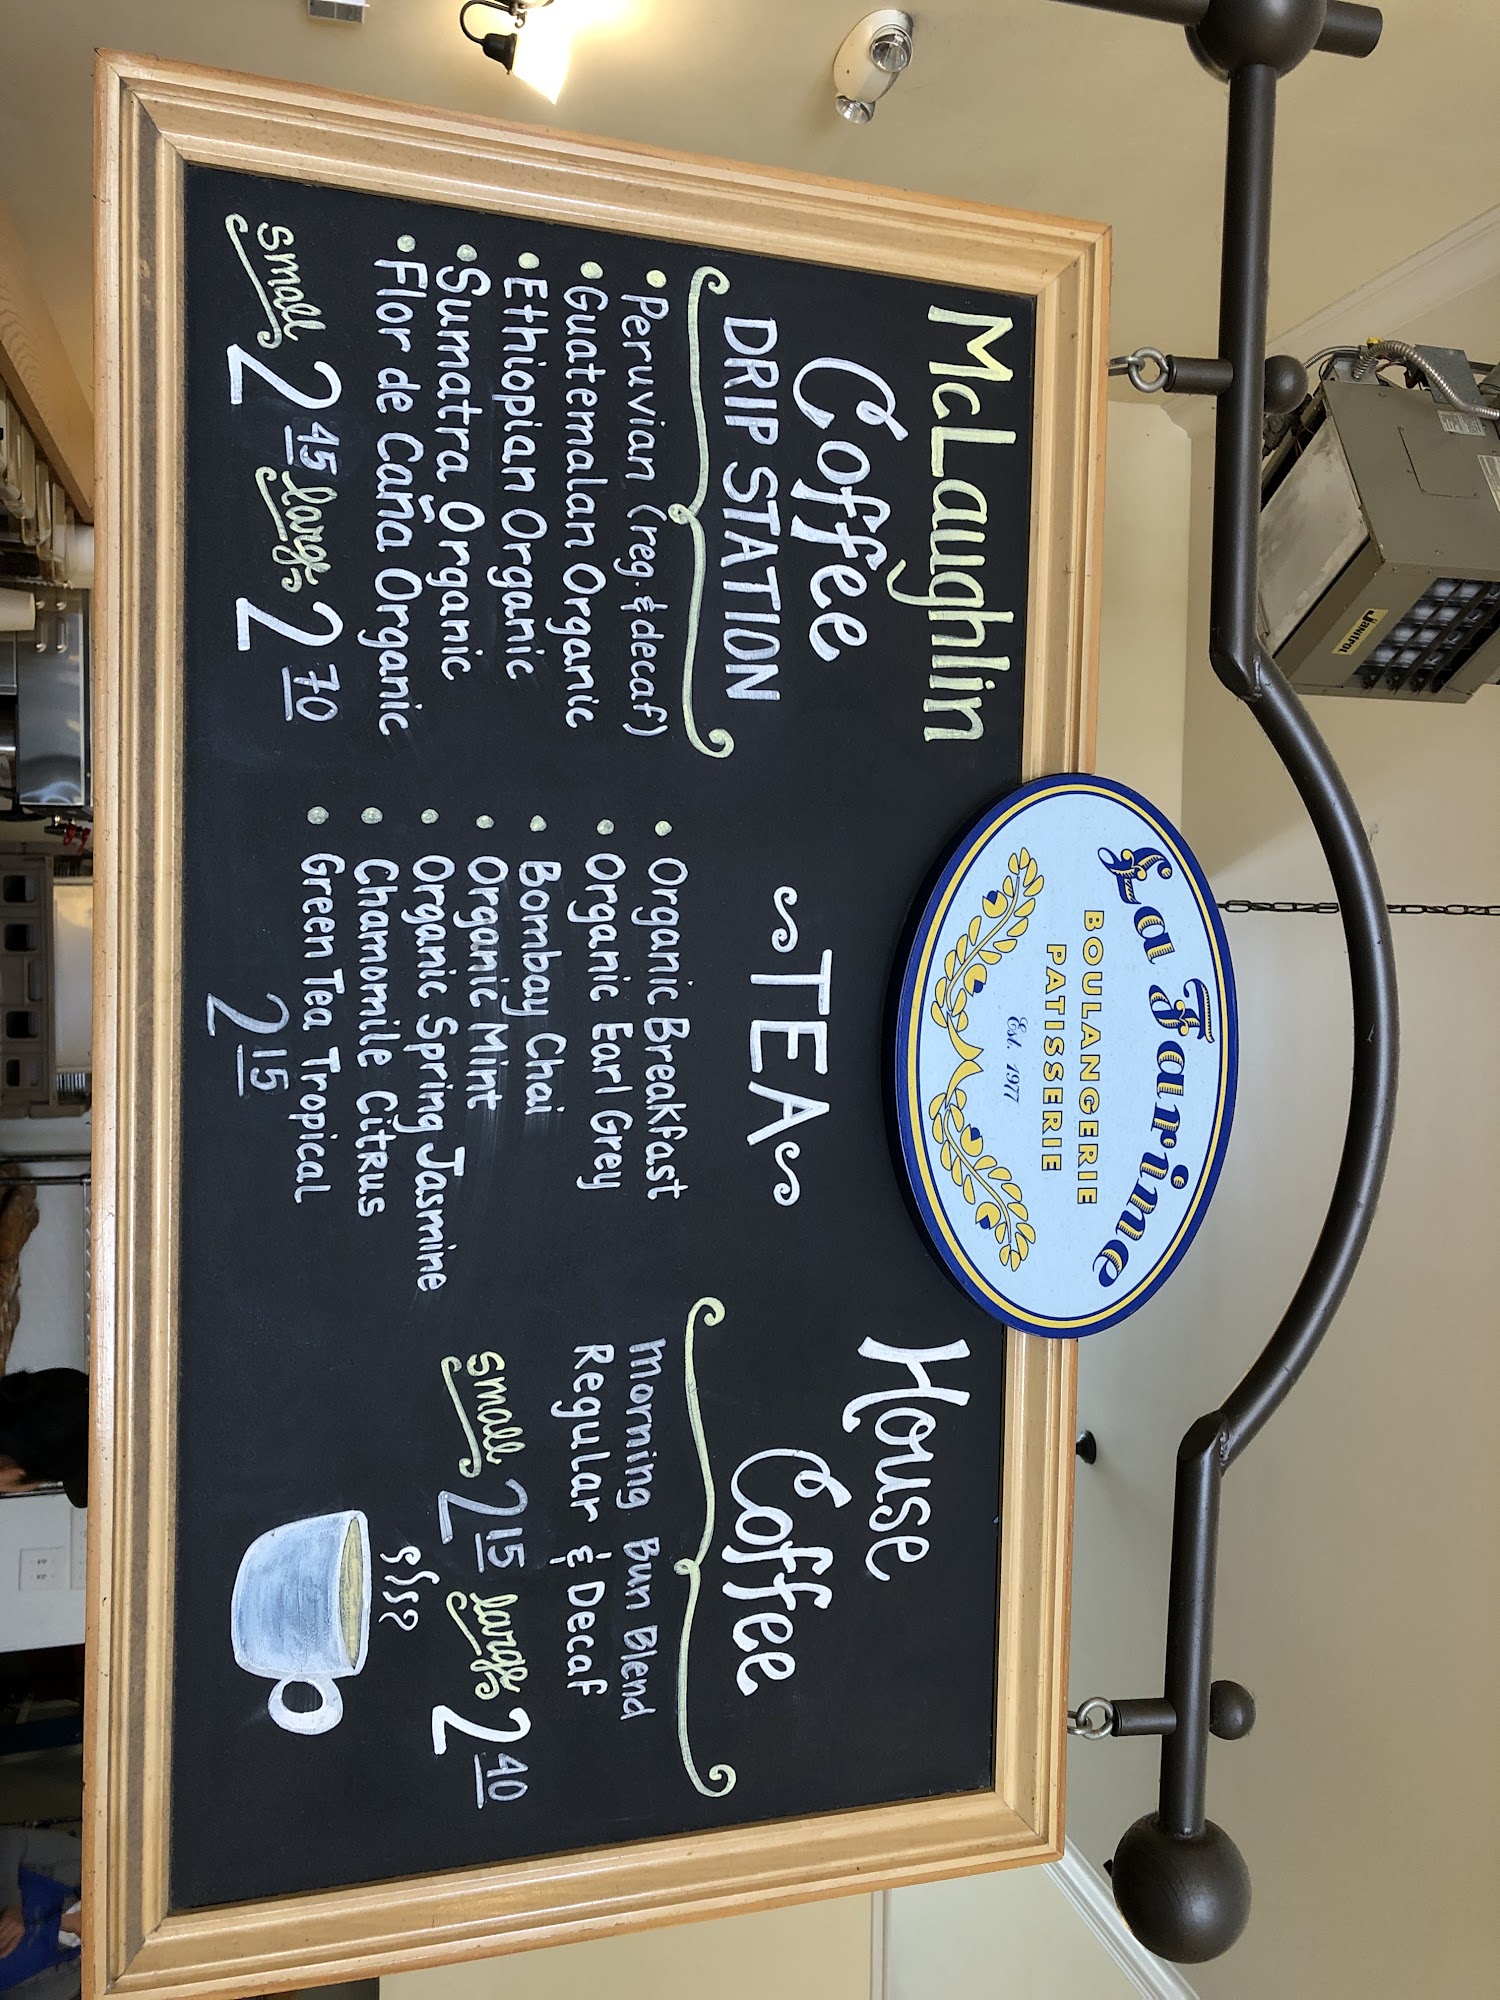 La Farine
BOULANGERIE
PATISSERIE
Est. 1977
McLaughlin
Coffee
DRIP STATION
• Peruvian (reg. & decaf)
• Guatemalan Organic
• Ethiopian Organic
• Sumatra Organic
• Flor de Caña Organic
small 2 45 large 2 70
~TEA~
• Organic Breakfast
• Organic Earl Grey
• Bombay Chai
• Organic Mint
• Organic Spring Jasmine
• Chamomile Citrus
• Green Tea Tropical
2 15
House
Coffee
Morning Bun Blend
Regular & Decaf
small 2 15 large 2 40
Janitrol